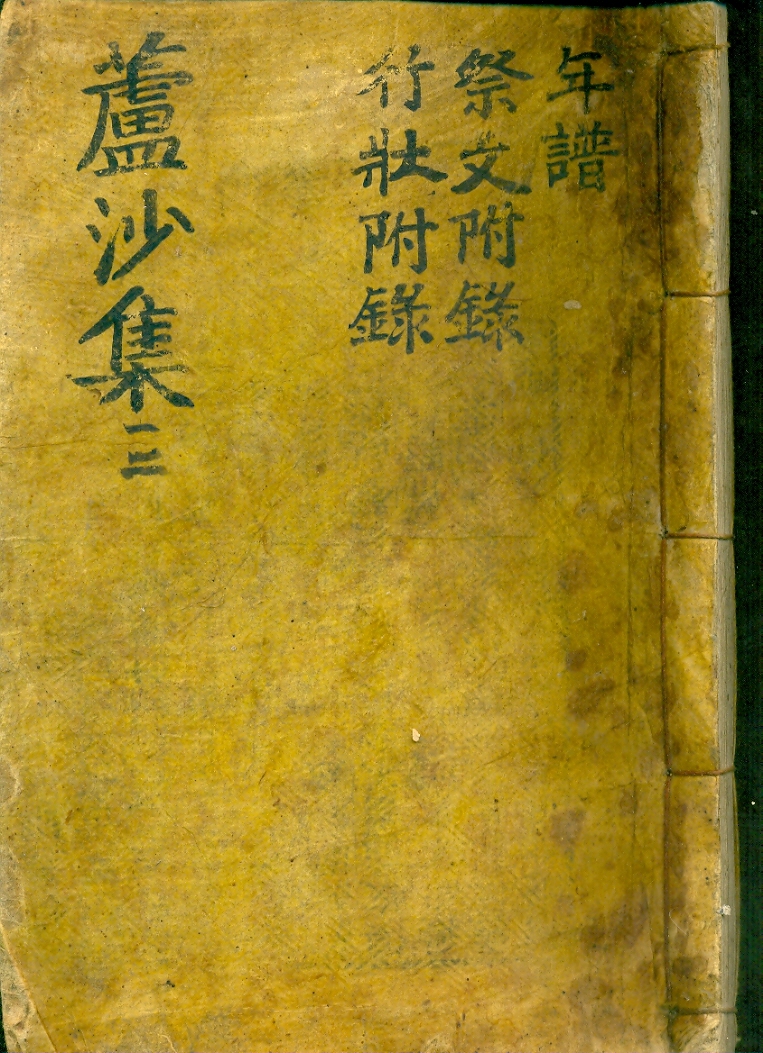 年譜
祭文附錄
行狀附錄
蘆沙集 三